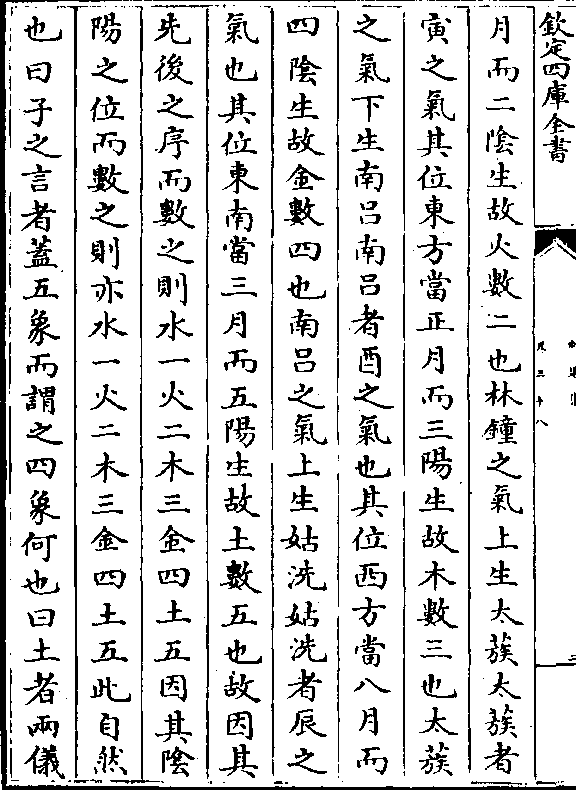 欽定四庫全書
月而二陰生故火數二也林鐘之氣上生太蔟太蔟者
寅之氣其位東方當正月而三陽生故木數三也太蔟
之氣下生南呂南呂者酉之氣也其位西方當八月而
四陰生故金數四也南呂之氣上生姑洗姑洗者辰之
氣也其位東南當三月而五陽生故土數五也故因其
先後之序而數之則水一火二木三金四土五因其陰
陽之位而數之則亦水一火二木三金四土五此自然
也曰子之言者蓋五象而謂之四象何也曰土者兩儀